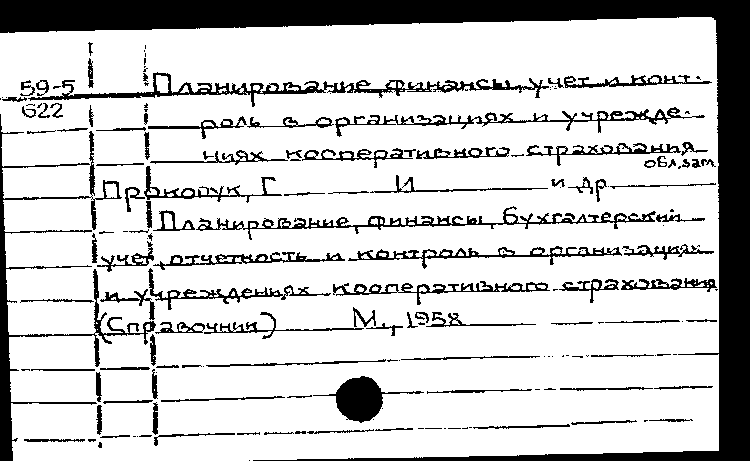 59-5 Планирование, финансы, учет и конт-
622
роль в организациях и учрежде-
ниях кооперативного страхования
обл.зам
Прокопук, Г И и др.
Планирование, финансы, бухгалтерский
учет, отчетность и контроль в организациях
и учреждениях кооперативного страхования
(Справочник) М., 1958